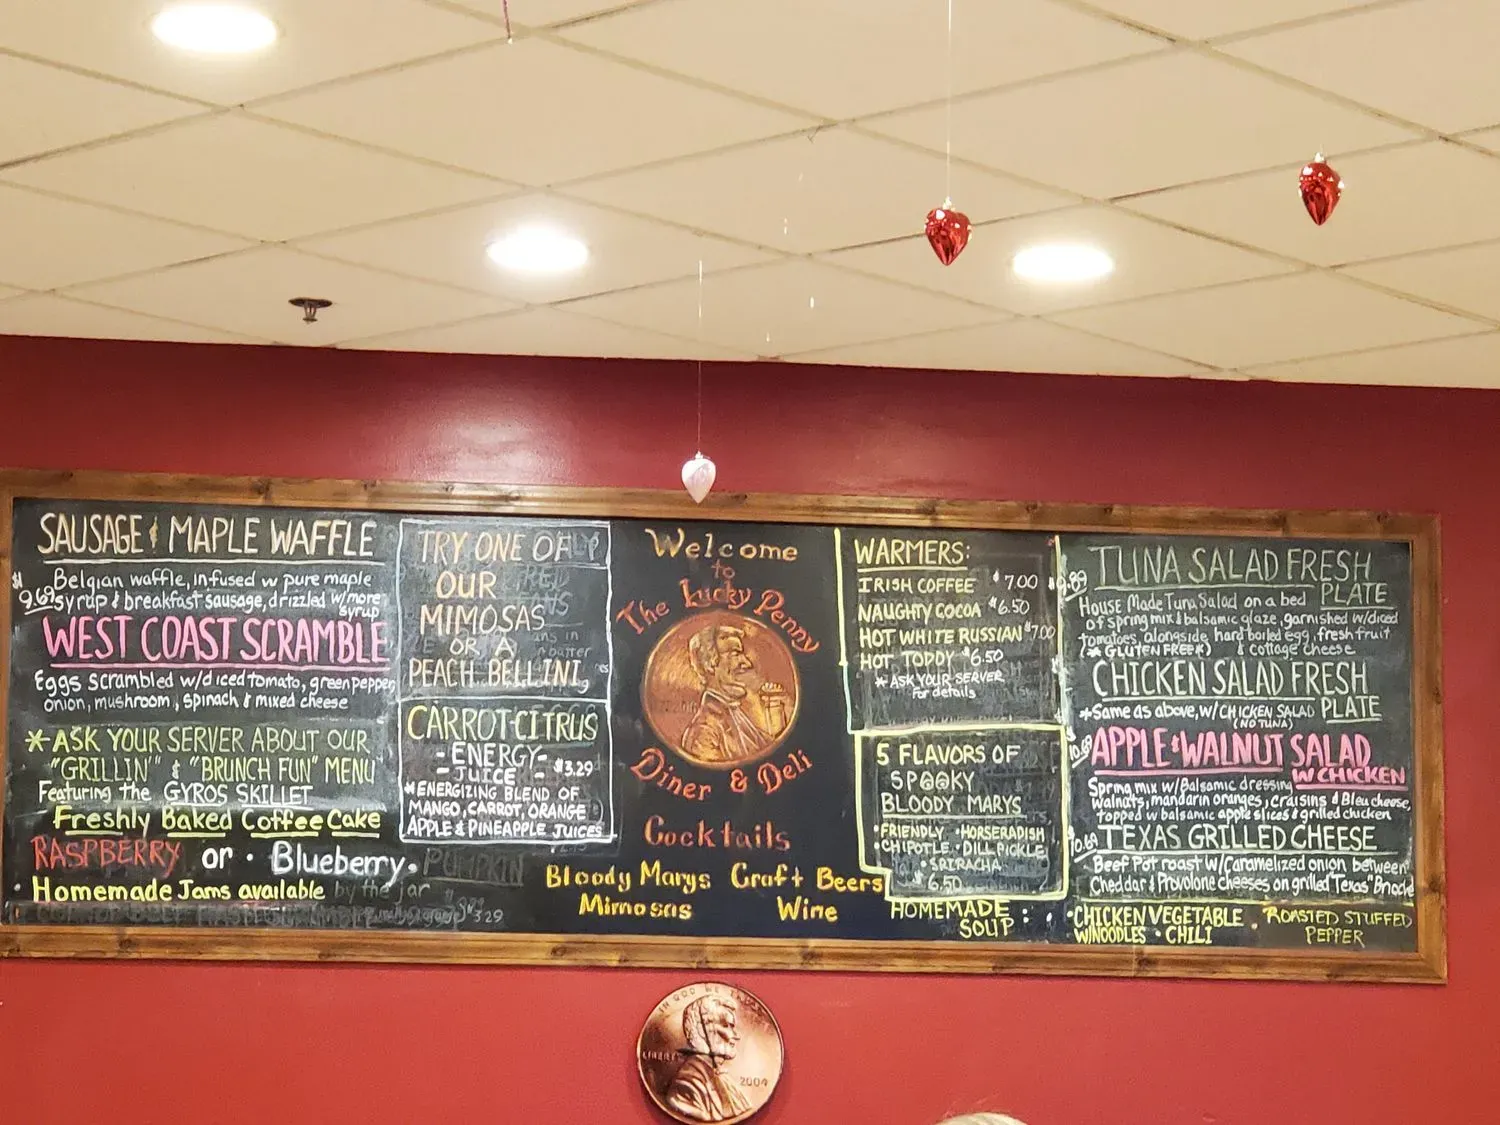 SAUSAGE & MAPLE WAFFLE
Belgian waffle, infused w pure maple
$9.69 syrup & breakfast sausage, drizzled w/more
syrup
WEST COAST SCRAMBLE
Eggs scrambled w/diced tomato, green pepper,
onion, mushroom, spinach & mixed cheese
*ASK YOUR SERVER ABOUT OUR
"GRILLIN'" & "BRUNCH FUN" MENU
Featuring the GYROS SKILLET
Freshly Baked Coffee Cake
RASPBERRY or • Blueberry.
PUMPKIN
• Homemade Jams available by the jar
$3.29
TRY ONE OF
OUR
MIMOSAS
OR A
PEACH BELLINI
CARROT-CITRUS
-ENERGY-
-JUICE- $3.29
*ENERGIZING BLEND OF
MANGO, CARROT, ORANGE
APPLE & PINEAPPLE JUICES
Welcome
to
The Lucky Penny
Diner & Deli
Cocktails
Bloody Marys Craft Beers
Mimosas Wine
WARMERS:
IRISH COFFEE $7.00
NAUGHTY COCOA $6.50
HOT WHITE RUSSIAN $7.00
HOT TODDY $6.50
*ASK YOUR SERVER
For details
5 FLAVORS OF
SPOOKY
BLOODY MARYS
•FRIENDLY •HORSERADISH
•CHIPOTLE •DILL PICKLE
•SRIRACHA
$6.50
HOMEMADE :
SOUP
TUNA SALAD FRESH
$9.89 PLATE
House Made Tuna Salad on a bed
of spring mix & balsamic glaze, garnished w/diced
tomatoes, alongside hard boiled egg, fresh fruit
(*GLUTEN FREE*) & cottage cheese
CHICKEN SALAD FRESH
*Same as above, w/CHICKEN SALAD PLATE
(NO TUNA)
10.69 APPLE & WALNUT SALAD
W CHICKEN
Spring mix w/Balsamic dressing
walnuts, mandarin oranges, craisins & Bleu cheese,
topped w balsamic apple slices & grilled chicken
10.69 TEXAS GRILLED CHEESE
Beef Pot roast w/Caramelized onion between
Cheddar & Provolone cheeses on grilled Texas Brioche
•CHICKEN VEGETABLE • ROASTED STUFFED
W/NOODLES •CHILI PEPPER
IN GOD WE TRUST
LIBERTY
2004